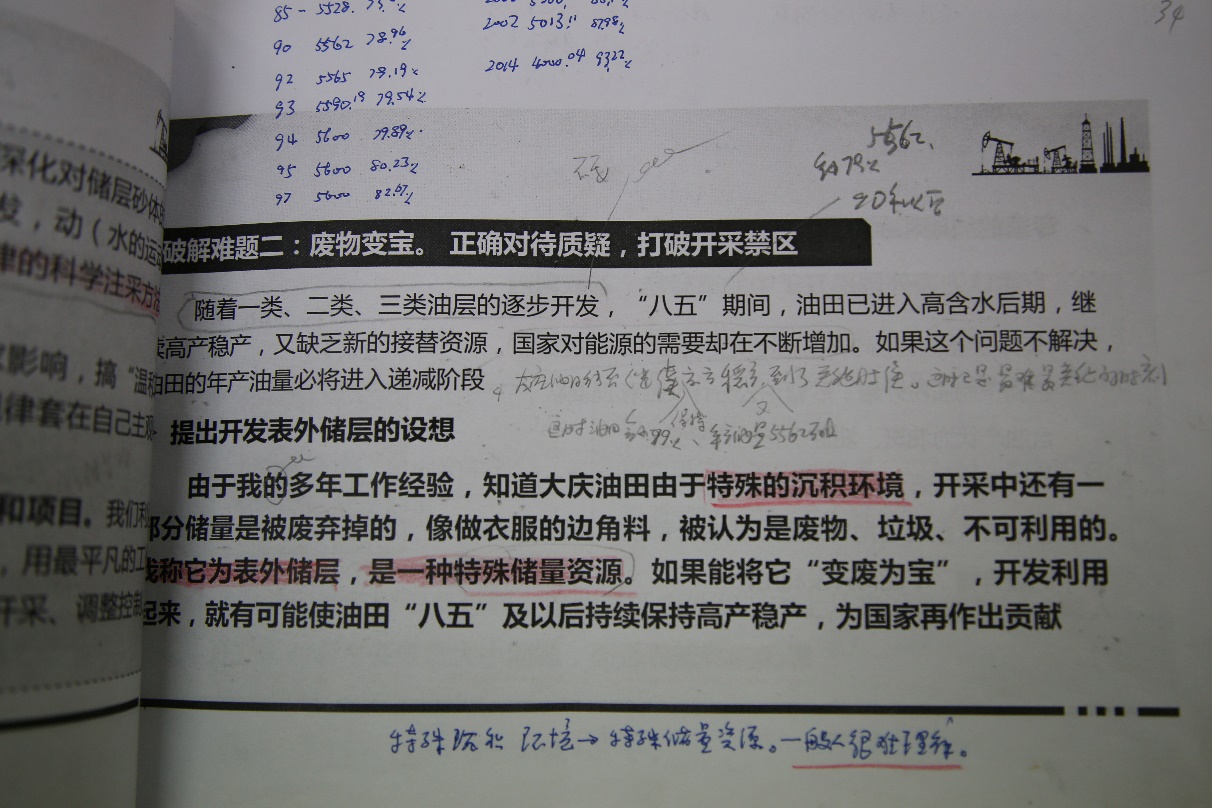 34
90 5562 78.96%
92 5565 79.19%
2002 5013.11 87.98%
93 5590.19 79.54%
2014 4000.04 93.22%
94 5600 79.89%
95 5600 80.23%
97 5600 82.67%
5562
破解难题二：废物变宝。 正确对待质疑，打破开采禁区
随着一类、二类、三类油层的逐步开发，“八五”期间，油田已进入高含水后期，继
续高产稳产，又缺乏新的接替资源，国家对能源的需要却在不断增加。如果这个问题不解决，
油田的年产油量必将进入递减阶段
提出开发表外储层的设想
由于我的多年工作经验，知道大庆油田由于特殊的沉积环境，开采中还有一
部分储量是被废弃掉的，像做衣服的边角料，被认为是废物、垃圾、不可利用的。
我称它为表外储层，是一种特殊储量资源。如果能将它“变废为宝”，开发利用
起来，就有可能使油田“八五”及以后持续保持高产稳产，为国家再作出贡献
特殊沉积 环境→特殊储量资源。一般人很难理解。
深化对储层砂体
发，动（水的运
律的科学注采方法
影响，搞“温和
规律套在自己主观
和项目。我们利
，用最平凡的工
开采、调整控制